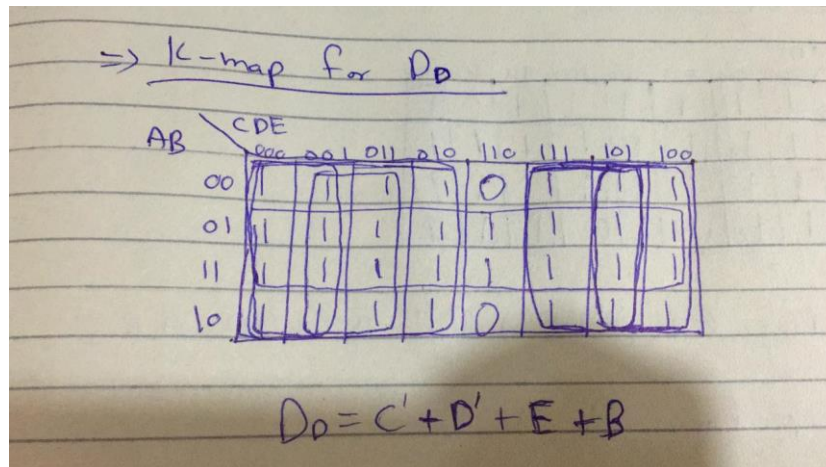 => K-map for D_D
AB CDE
000 001 011 010 110 111 101 100
00 1 1 1 1 0 1 1 1
01 1 1 1 1 1 1 1 1
11 1 1 1 1 1 1 1 1
10 1 1 1 1 0 1 1 1
D_D = C' + D' + E + B